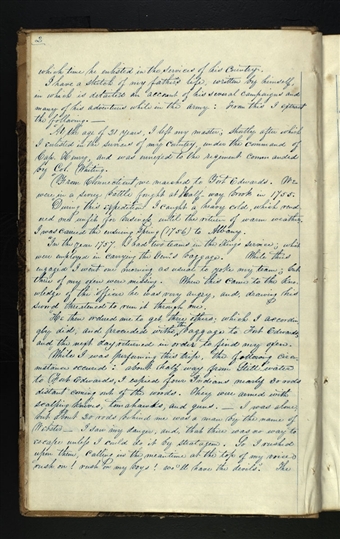 2
which time he enlisted in the services of his Country.
I have a sketch of my fathers life, written by himself,
in which is detailed an account of his several campaigns and
many of his adventures while in the army: From this I extract
the following. —
At the age of 21 years, I left my master, shortly after which
I enlisted in the services of my Country, under the command of
Cap. Henry, and was annexed to the regiment commanded
by Col. Whiting.
From Connecticut we marched to Fort Edwards. We
were in a severe battle fought at Half way Brook in 1755.
During this expedition I caught a heavy cold, which rend
ered me unfit for business until the return of warm weather.
I was carried the ensuing Spring (1756) to Albany.
In the year 1757 I had two teams in the Kings service; which
were employed in carrying the Gen's baggage. While thus
engaged I went one morning as usual to yoke my team; but
three of my oxen were missing. When this came to the know
ledge of the officer he was very angry, and, drawing his
sword threatened to run it through me.
He then ordered me to get three others; which I accordin
gly did, and proceeded with the baggage to Fort Edwards,
and the next day returned in order to find my oxen.
While I was performing this trip, the following circum
stance occurred: about half way from Still-water
to Fort Edwards, I espied four Indians nearly 20 rods
distant coming out of the woods. They were armed with
scalping knives, tomahawks, and guns. — I was alone,
but about 20 rods behind me was a man by the name of
Webster — I saw my danger, and that there was no way to
escape unless I could do it by stratagem. So I rushed
upon them, calling in the meantime at the top of my voice,
rush on! rush on my boys! we'll have the devils. The